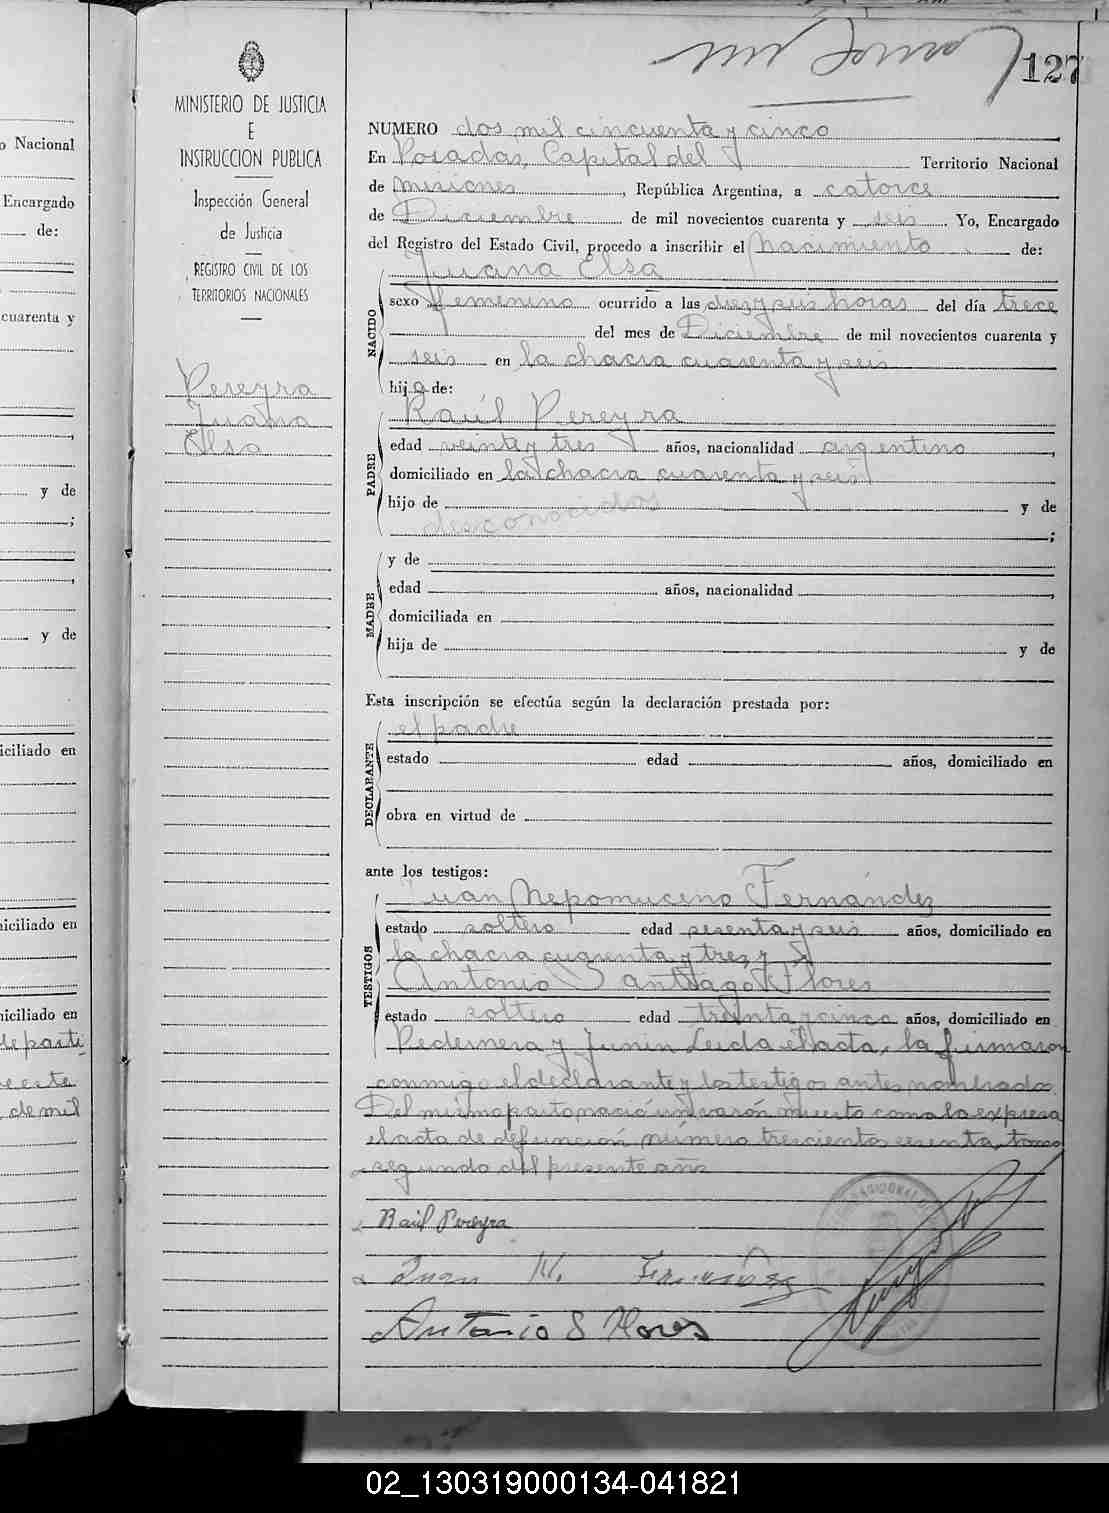 127
MINISTERIO DE JUSTICIA
E
INSTRUCCION PUBLICA
Inspección General
de Justicia
REGISTRO CIVIL DE LOS
TERRITORIOS NACIONALES
Pereyra
Juana
Elsa
o Nacional
Encargado
de:
cuarenta y
y de
;
y de
iciliado en
niciliado en
niciliado en
de parti
de mil
NUMERO dos mil cincuenta y cinco
En Posadas, Capital del Territorio Nacional
de Misiones, República Argentina, a catorce
de Diciembre de mil novecientos cuarenta y seis Yo, Encargado
del Registro del Estado Civil, procedo a inscribir el Nacimiento de:
NACIDO
Juana Elsa
sexo femenino ocurrido a las diez y seis horas del día trece
del mes de Diciembre de mil novecientos cuarenta y
seis en la chacra cuarenta y seis
hija de:
PADRE
Raúl Pereyra
edad veinte y tres años, nacionalidad argentino,
domiciliado en la chacra cuarenta y seis
hijo de y de
desconocidos ;
MADRE
y de
edad años, nacionalidad ,
domiciliada en
hija de y de
Esta inscripción se efectúa según la declaración prestada por:
DECLARANTE
el padre
estado edad años, domiciliado en
obra en virtud de
ante los testigos:
TESTIGOS
Juan Nepomuceno Fernández
estado soltero edad sesenta y seis años, domiciliado en
la chacra cuarenta y tres y
Antonio Santiago Flores
estado soltero edad treinta y cinco años, domiciliado en
Pedernera y Junin Leida el acta, la firmaron
conmigo el declarante y los testigos antes nombrados.
Del mismo parto nació un varón muerto como lo expresa
el acta de defunción número trescientos sesenta, tomo
segundo del presente año
Raúl Pereyra
Juan N. Fernández
Antonio S Flores
02_130319000134-041821